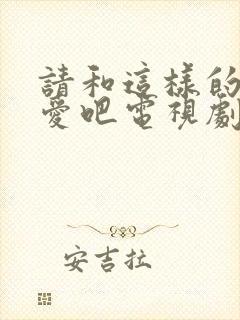 請和這樣的
愛吧電視劇
安吉拉